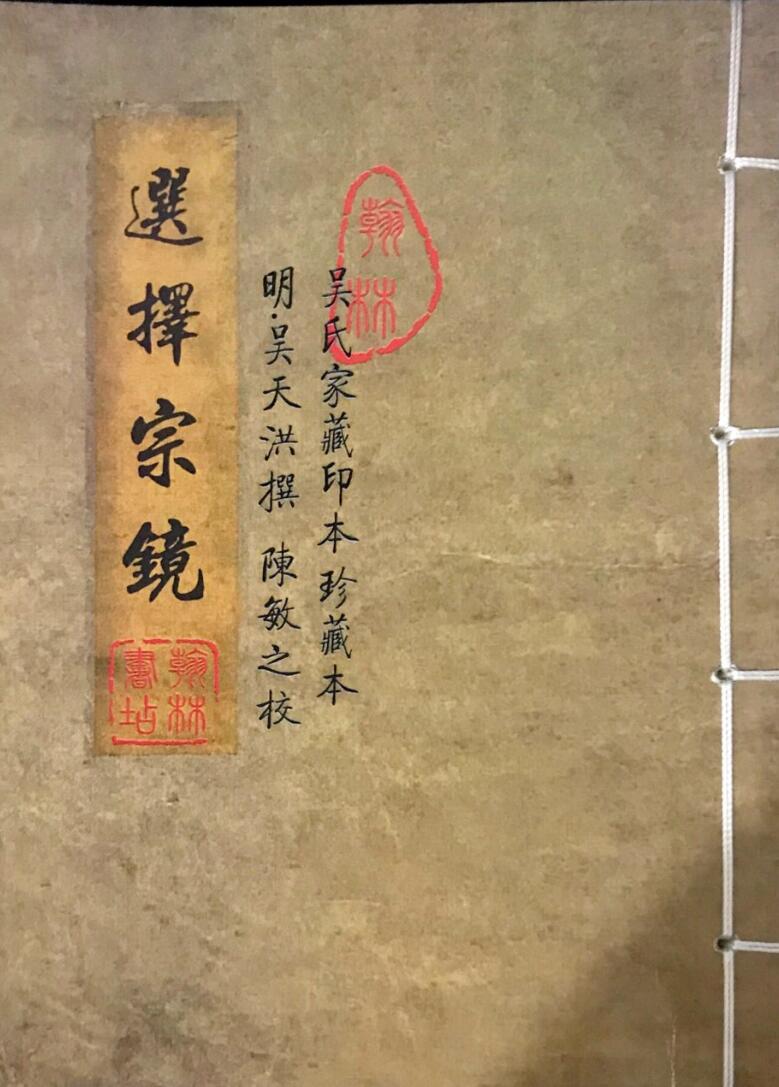 翰林
吴氏家藏印本珍藏本
明·吴天洪撰 陳敏之校
選擇宗鏡
翰林書坫